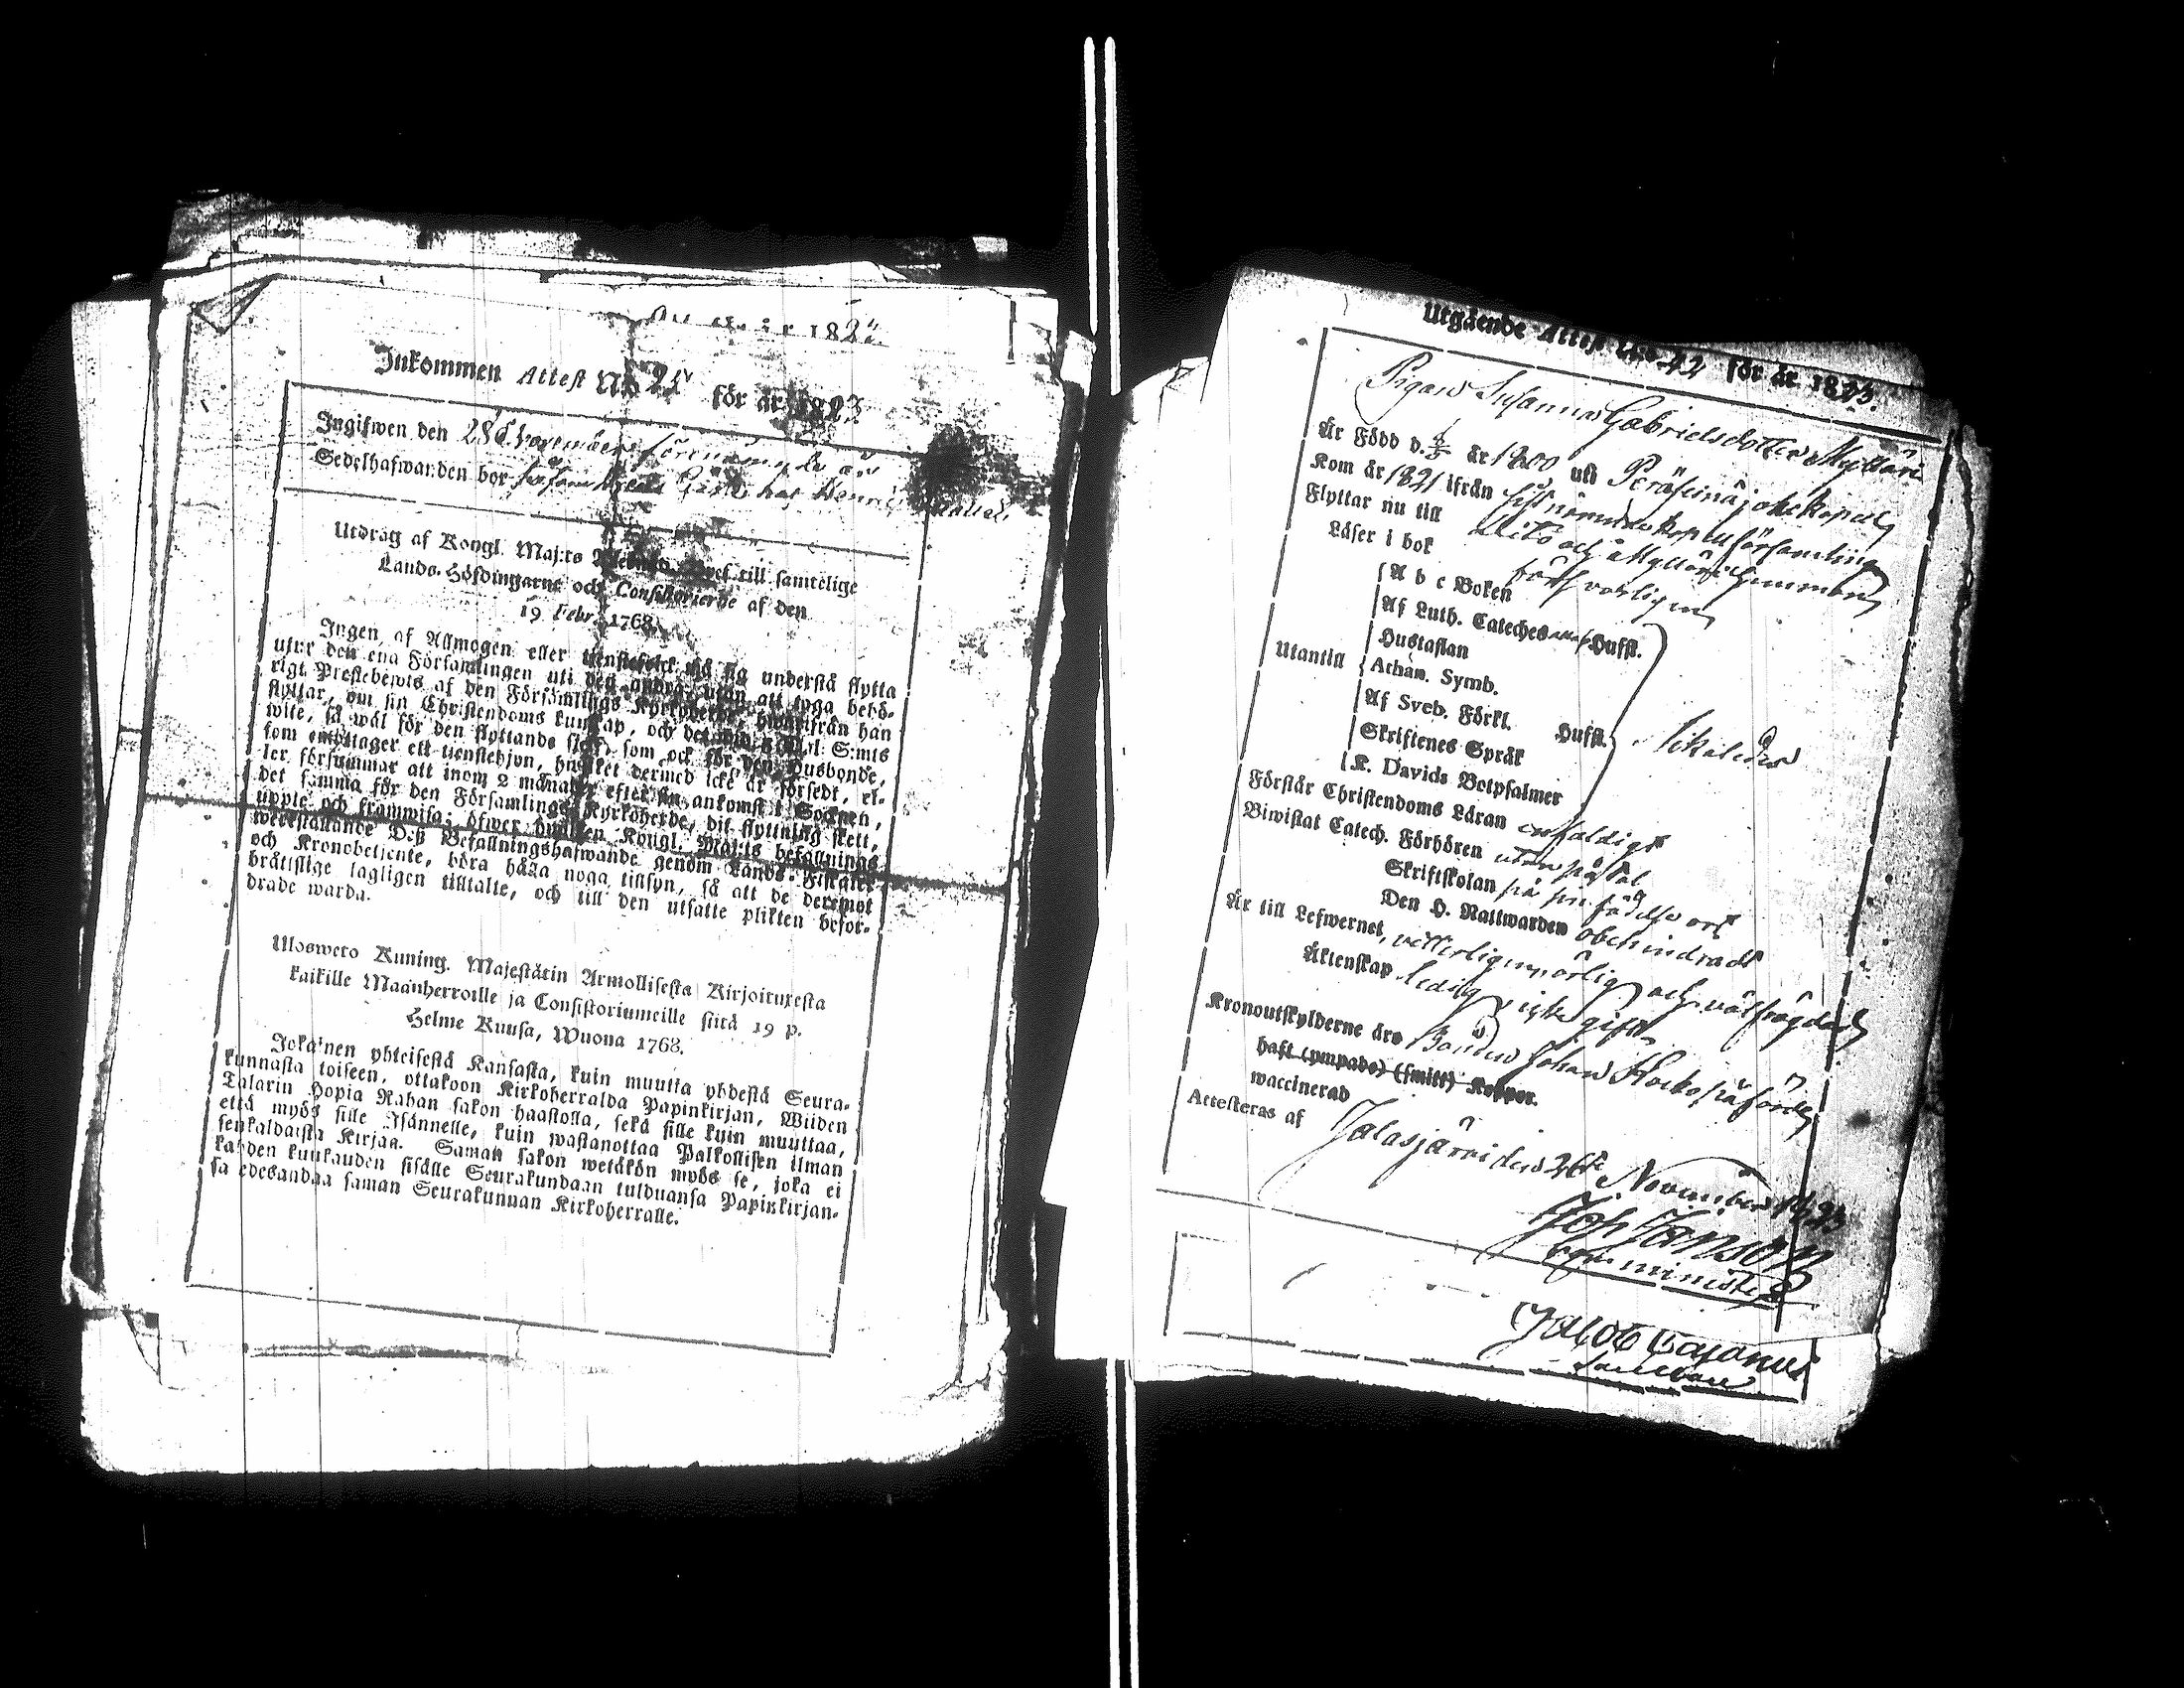 för år 182
Inkommen Attest No 25 för år 1823
Ingifwen den 28 November förenämnde år
Sedelhafwanden bor
Utdrag af Kongl. Maj:ts Bref till samtelige
Lands-Höfdingarne och Consistorierne af den
19 Febr. 1768.
Ingen af Allmogen eller tienstefolck må sig understå flytta
utur den ena Församlingen uti den andra, utan att taga behö-
rigt Prestebewis af den Församlings Kyrkoherde, hwarifrån han
flyttar, om sin Christendoms kunskap, och det wid 5 Dal. S:mts
wite, så wäl för den flyttande sjelf, som ock för den Husbonde,
som emottager ett tienstehjon, hwilket dermed icke är försedt, el-
ler försummar att inom 2 månader efter sin ankomst i Socknen,
det samma för den Församlings Kyrkoherde, dit flyttning skett,
uppte och framwisa; öfwer hwilken Kongl. Maj:ts befallnings
werkställande Deß Befallningshafwande genom Lands-Fiscaler
och Kronobetjente, böra hålla noga tillsyn, så att de deremot
bråttslige lagligen tilltalte, och till den utsatte plikten befor-
drade warda.
Uloswето Kuning. Majestätin Armollisesta Kirjoituxesta
kaikille Maanherroille ja Consistoriumeille siitä 19 p.
Helme Kuusa, Wuona 1768.
Jokainen yhteisestä Kansasta, kuin muutta yhdestä Seura-
kunnasta toiseen, ottakoon Kirkoherralda Papinkirjan, Wiiden
Talarin Hopia Rahan sakon haastolla, sekä sille kuin muuttaa,
että myös sille Isännelle, kuin wastanottaa Palkollisen ilman
senkaldaista Kirjaa. Saman sakon wetäkön myös se, joka ei
kahden kuukauden sisälle Seurakundaan tulduansa Papinkirjan-
sa edesandaa saman Seurakunnan Kirkoherralle.
Utgående Attest No 42 för år 1823.
Pigan Susanna Gabrielsdotter Mylläri
Är Född d. år 1800 uti Peräseinäjoki Kapell
Kom år 1821 ifrån sistnämnde kapellförsamling
Flyttar nu till dito och Mylläri hemman
Läser i bok försvarligen
Utantill
A b c Boken
Af Luth. Cateches Hufst.
Hustaflan
Athan. Symb.
Af Sveb. Förkl. Hufst.
Skriftenes Språk
K. Davids Botpsalmer
Förstår Christendoms Läran enfaldigt
Biwistat Catech. Förhören utan påtal
Skriftskolan på sin födelse ort
Den H. Nattwarden obehindradt
Är till Lefwernet, ärlig och välfrägdad
Äktenskap ledig, icke gift
Kronoutskylderne äro Bonden Johan
haft (ympade) (smitt) Koppor.
waccinerad
Attesteras af
Jalasjärvi den 26te November 1823
Joh Janson
minister
Jacob Cajanus